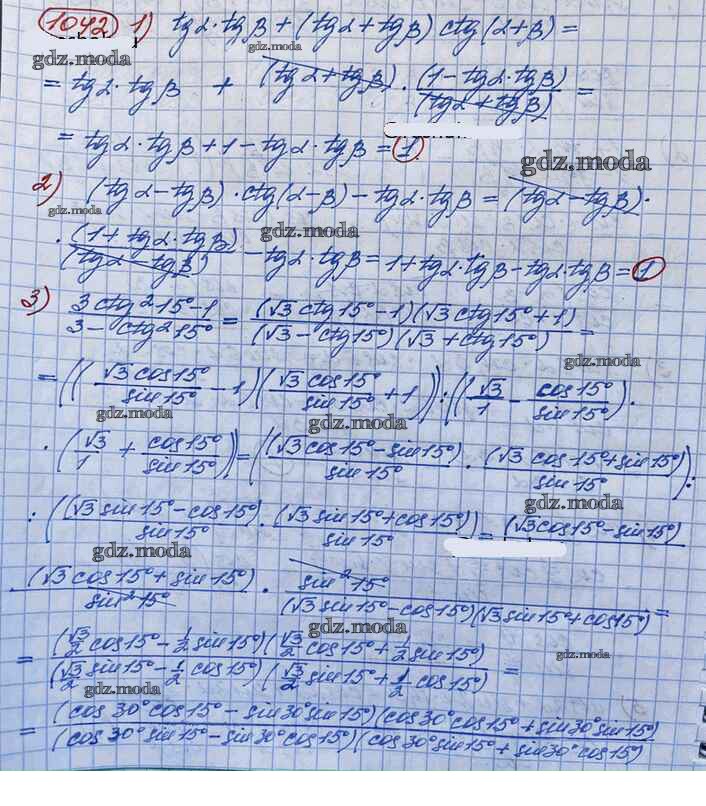 1042 1) tg2·tgβ + (tg2+tgβ) ctg(2+β) =
gdz.moda
= tg2·tgβ + (tg2+tgβ) · (1-tg2·tgβ)/(tg2+tgβ) =
= tg2·tgβ + 1 - tg2·tgβ = 1.
gdz.moda
2) (tg2-tgβ)·ctg(2-β) - tg2·tgβ = (tg2-tgβ)·
gdz.moda
gdz.moda
· (1+tg2·tgβ)/(tg2-tgβ) - tg2·tgβ = 1+tg2·tgβ-tg2·tgβ = 1
3) (3ctg²15°-1)/(3-ctg²15°) = (√3ctg15°-1)(√3ctg15°+1)/(√3-ctg15°)(√3+ctg15°) =
gdz.moda
= ((√3cos15°/sin15° - 1)(√3cos15°/sin15° + 1)):((√3/1 - cos15°/sin15°)·
gdz.moda
gdz.moda
·(√3/1 + cos15°/sin15°)) = ((√3cos15°-sin15°)/sin15° · (√3cos15°+sin15°)/sin15°):
gdz.moda
:((√3sin15°-cos15°)/sin15° · (√3sin15°+cos15°)/sin15°) = (√3cos15°-sin15°)
gdz.moda
(√3cos15°+sin15°)/sin²15° · sin²15°/(√3sin15°-cos15°)(√3sin15°+cos15°) =
gdz.moda
= (√3/2cos15°-1/2sin15°)(√3/2cos15°+1/2sin15°)/(√3/2sin15°-1/2cos15°)(√3/2sin15°+1/2cos15°) =
gdz.moda
gdz.moda
= (cos30°cos15°-sin30°sin15°)(cos30°cos15°+sin30°sin15°)/(cos30°sin15°-sin30°cos15°)(cos30°sin15°+sin30°cos15°)